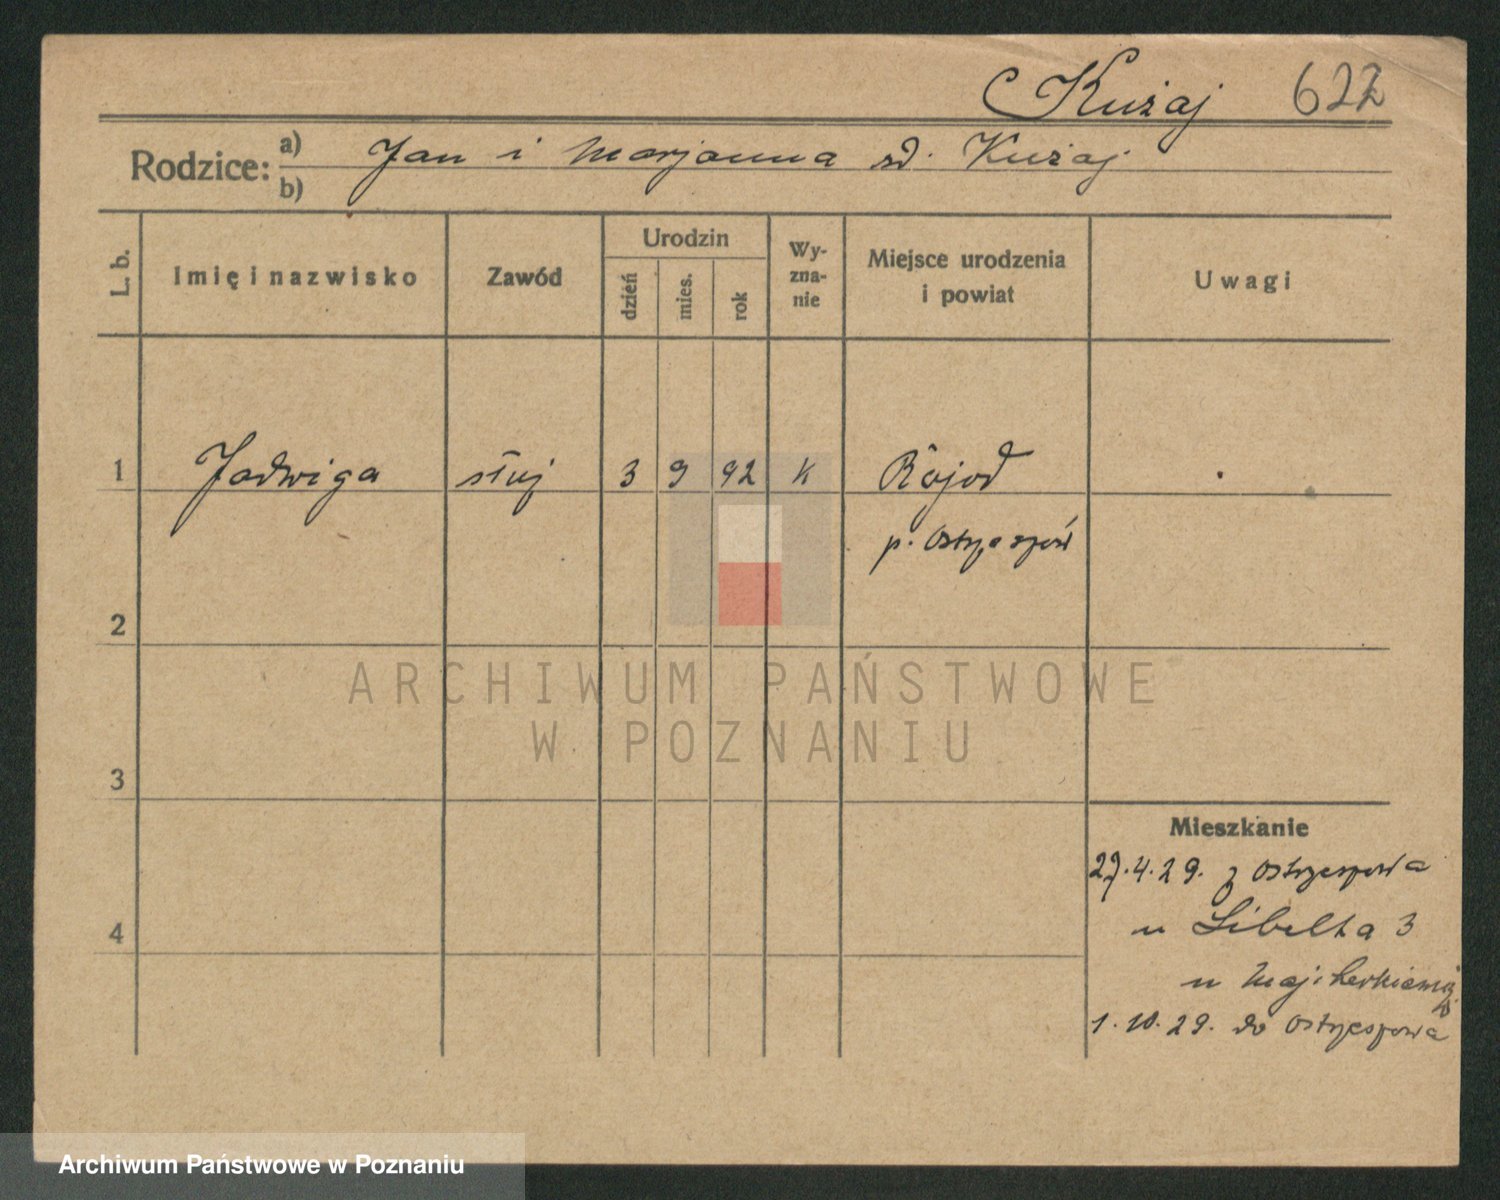 Kużaj 622
Rodzice: a) Jan i Marjanna zd. Kużaj
b)
L. b. Imię i nazwisko Zawód Urodzin dzień mies. rok Wy-zna-nie Miejsce urodzenia i powiat Uwagi
1 Jadwiga służ 3 9 92 k Rojod
p. Ostrzeszów
2
3
4
Mieszkanie
27.4.29. z Ostrzeszowa
u Libelta 3
u
1.10.29. do Ostrzeszowa
ARCHIWUM PAŃSTWOWE
W POZNANIU
Archiwum Państwowe w Poznaniu